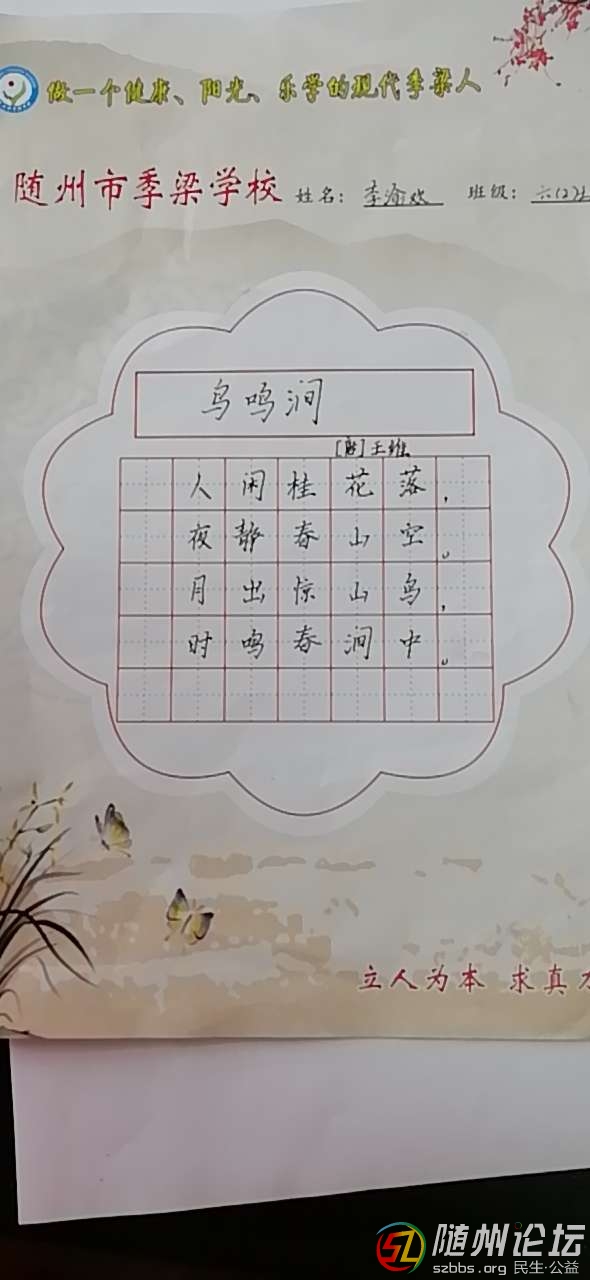 做一个健康、阳光、乐学的现代季梁人
随州市季梁学校 姓名: 李渝欢 班级: 六(2)
鸟鸣涧
[唐] 王维
人闲桂花落，
夜静春山空。
月出惊山鸟，
时鸣春涧中。
立人为本 求真
随州论坛
szbbs.org 民生·公益